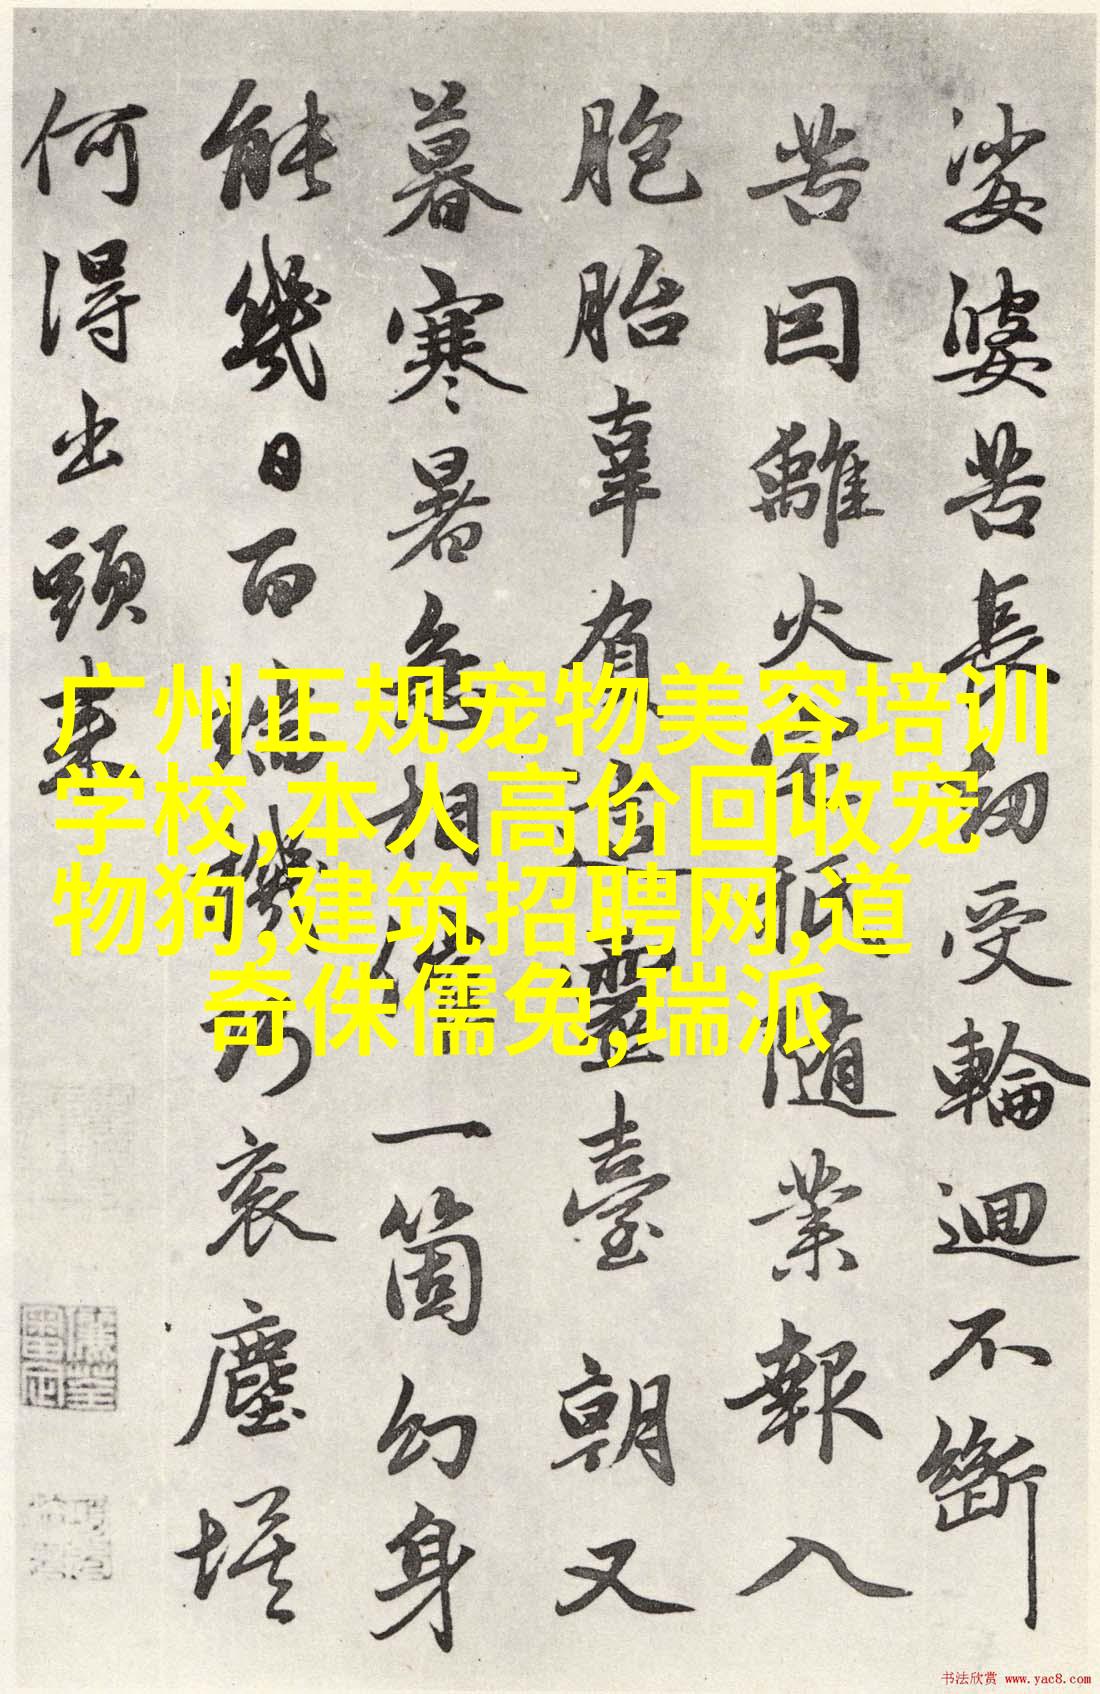 娑婆苦長劫受輪迴不斷
苦因離火宅抵隨業報入
胞胎辜負這靈臺朝又
暮寒暑急相催一箇幻身
能幾日百端機巧衮塵埃
何得出頭来
广州正规宠物美容培训
学校,本人高价回收宠
物狗,建筑招聘网,道
奇侏儒兔,瑞派
书法欣赏 www.yac8.com